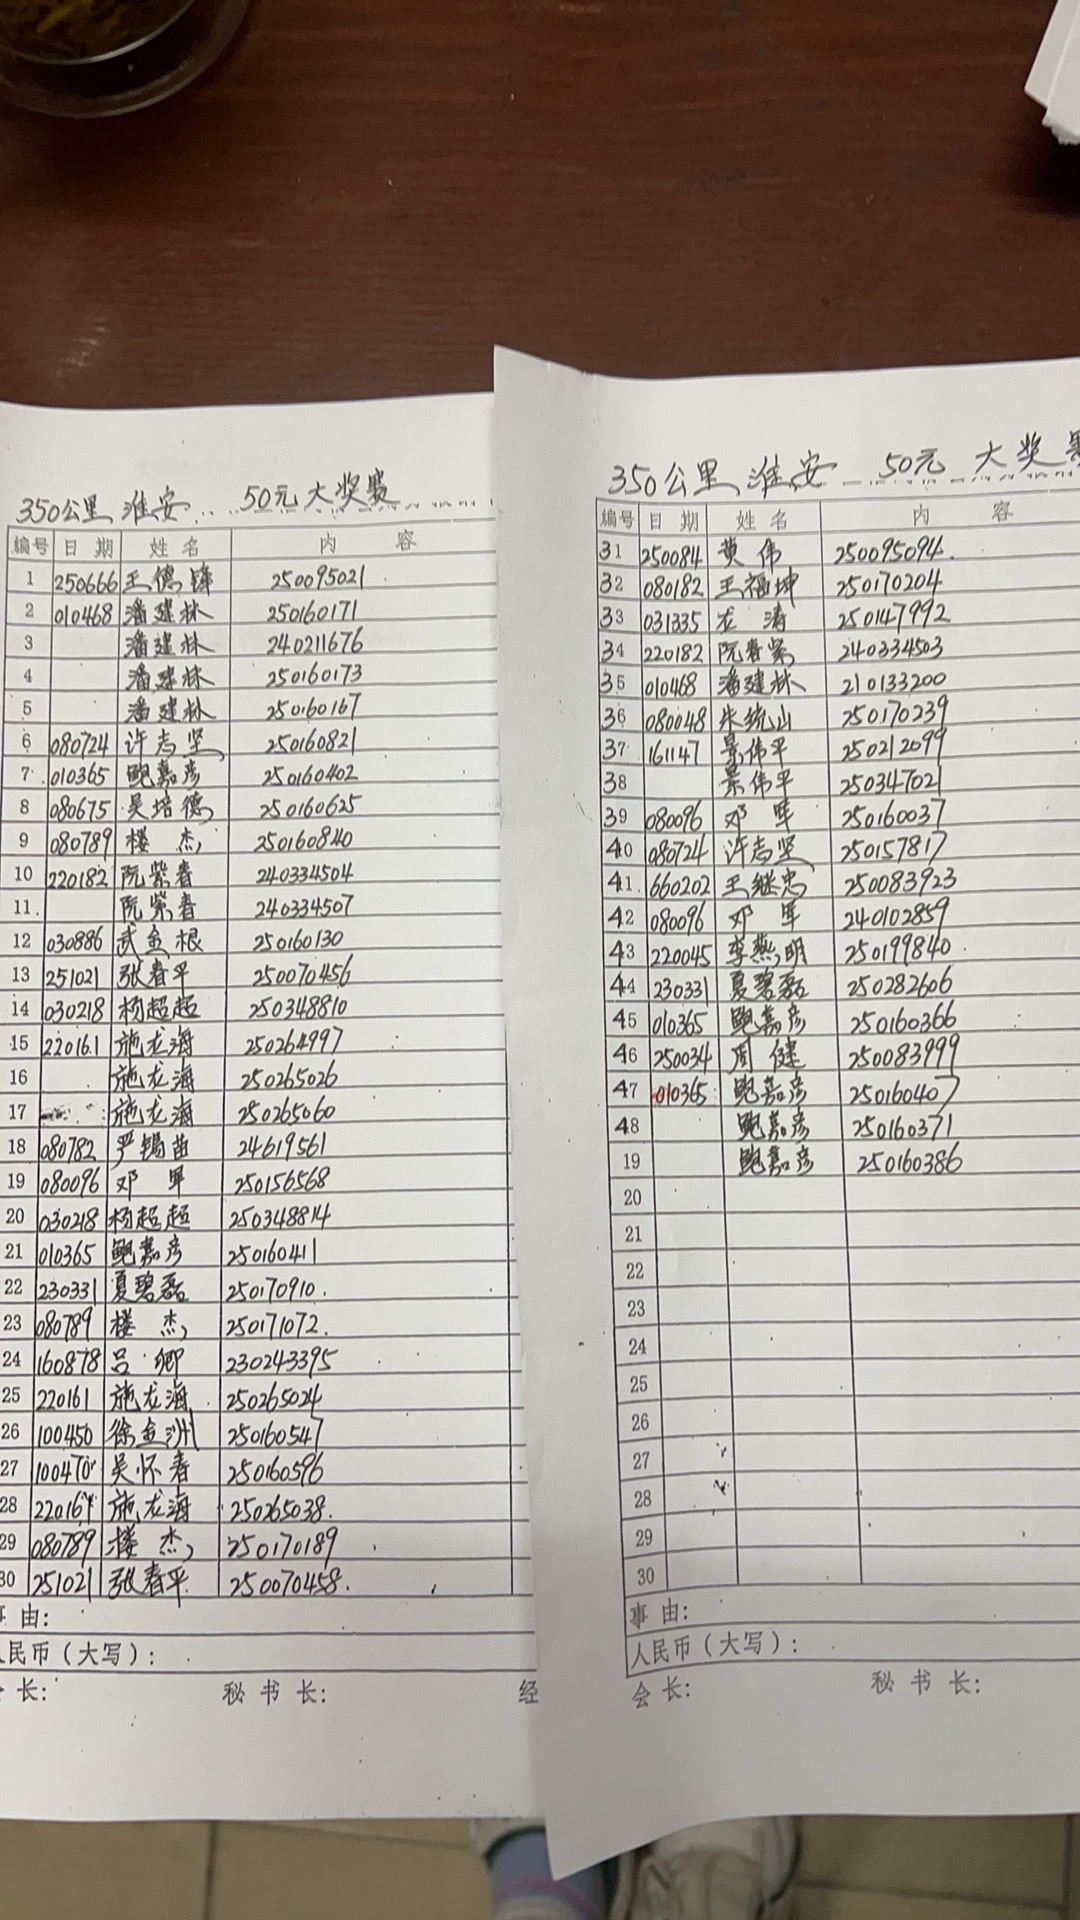 350公里 淮安 50元 大奖赛
编号 日期 姓名 内容
1 250666 王德锋 250095021
2 010468 潘建林 250160171
3 潘建林 240211676
4 潘建林 250160173
5 潘建林 250160167
6 080724 许志坚 250160821
7 010365 鲍嘉彦 250160402
8 080675 吴培德 250160625
9 080789 楼杰 250160840
10 220182 阮紫春 240334504
11. 阮紫春 240334507
12 030886 武金根 250160130
13 251021 张春平 250070456
14 030218 杨超超 250348810
15 220161 施龙海 250264997
16 施龙海 250265026
17 施龙海 250265060
18 080782 严锡苗 24619561
19 080096 邓军 250156568
20 030218 杨超超 250348814
21 010365 鲍嘉彦 250160411
22 230331 夏碧磊 250170910.
23 080789 楼杰 250171072.
24 160878 吕卿 230243395
25 220161 施龙海 250265024
26 100450 徐金洲 250160547
27 100470 吴怀春 250160596
28 220161 施龙海 250265038.
29 080789 楼杰 250170189
30 251021 张春平 250070458.
事由:
人民币(大写):
会长: 秘书长: 经
350公里 淮安 50元 大奖赛
编号 日期 姓名 内容
31 250084 黄伟 250095094.
32 080182 王福坤 250170204
33 031335 龙涛 250147992
34 220182 阮春紫 240334503
35 010468 潘建林 210133200
36 080048 朱统山 250170239
37 161147 景伟平 250212099
38 景伟平 250347021
39 080096 邓军 250160037
40 080724 许志坚 250157817
41. 660202 王继忠 250083923
42 080096 邓军 240102859
43 220045 李燕明 250199840.
44 230331 夏碧磊 250282606
45 010365 鲍嘉彦 250160366
46 250034 周健 250083999
47 010365 鲍嘉彦 250160407
48 鲍嘉彦 250160371
19 鲍嘉彦 250160386
20
21
22
23
24
25
26
27
28
29
30
事由:
人民币(大写):
会长: 秘书长: